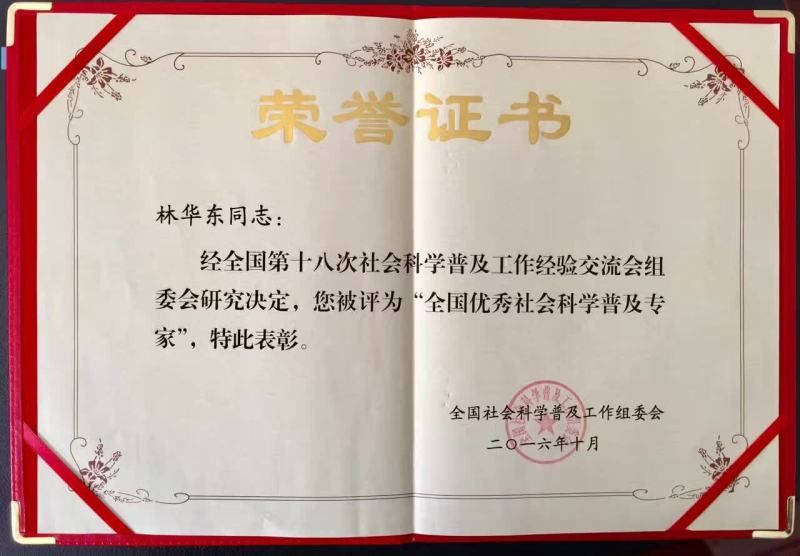 荣誉证书
林华东同志：
经全国第十八次社会科学普及工作经验交流会组
委会研究决定，您被评为“全国优秀社会科学普及专
家”，特此表彰。
全国社会科学普及工作组委会
二〇一六年十月